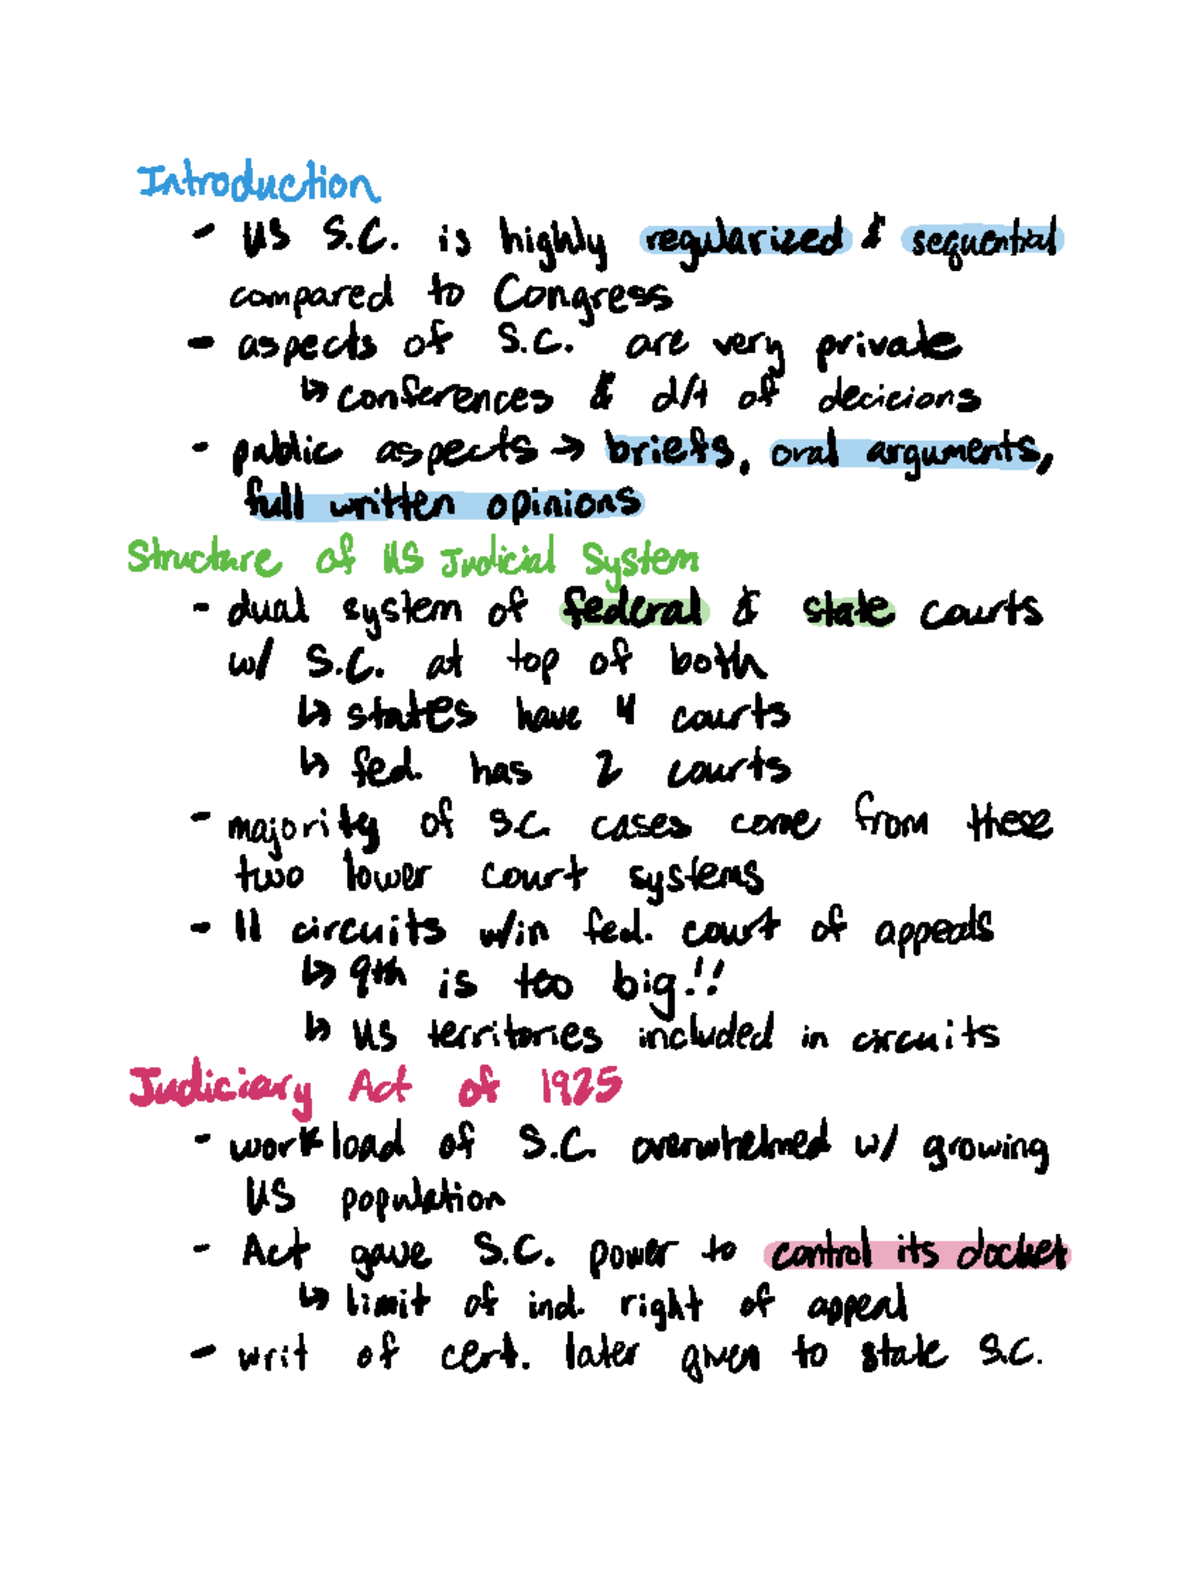 Introduction
- US S.C. is highly regularized & sequential
compared to Congress
- aspects of S.C. are very private
↳ conferences & d/t of decicions
- public aspects → briefs, oral arguments,
full written opinions
Structure of US Judicial System
- dual system of federal & state courts
w/ S.C. at top of both
↳ states have 4 courts
↳ fed. has 2 courts
- majority of S.C. cases come from these
two lower court systems
- 11 circuits w/in fed. court of appeals
↳ 9th is too big!!
↳ US territories included in circuits
Judiciary Act of 1925
- workload of S.C. overwhelmed w/ growing
US population
- Act gave S.C. power to control its docket
↳ limit of ind. right of appeal
- writ of cert. later given to state S.C.